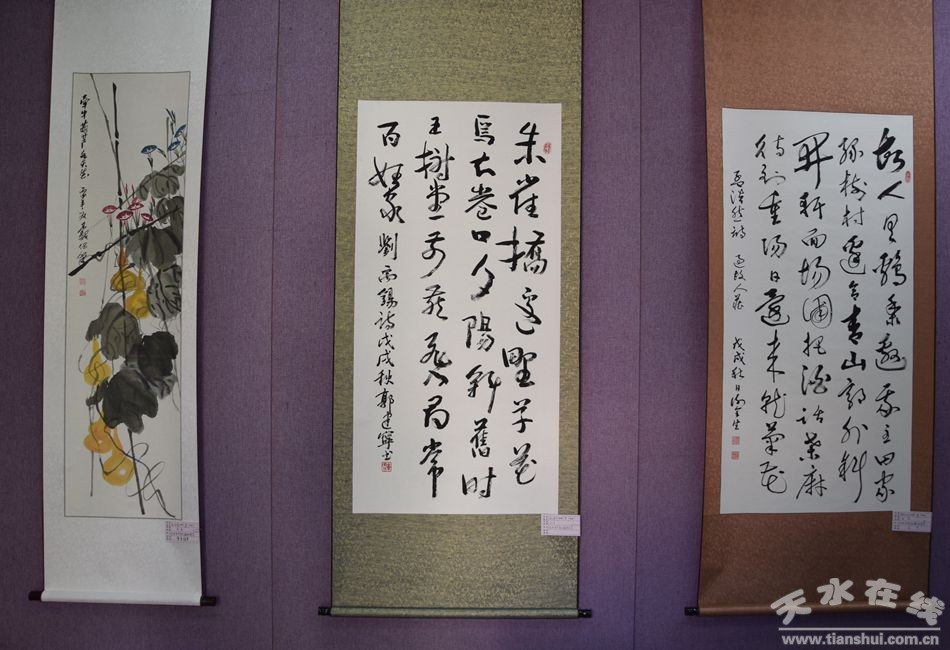 牽牛葫蘆
朱雀橋邊野草花
烏衣巷口夕陽斜舊時
王榭堂前燕飛入尋常
百姓家 劉禹錫詩戊戌秋郭建寧書
故人具鷄黍邀我至田家
綠樹村邊合青山郭外斜
開軒面場圃把酒話桑麻
待到重陽日還來就菊花
孟浩然詩 過故人莊 戊戌秋日
天水在线
www.tianshui.com.cn